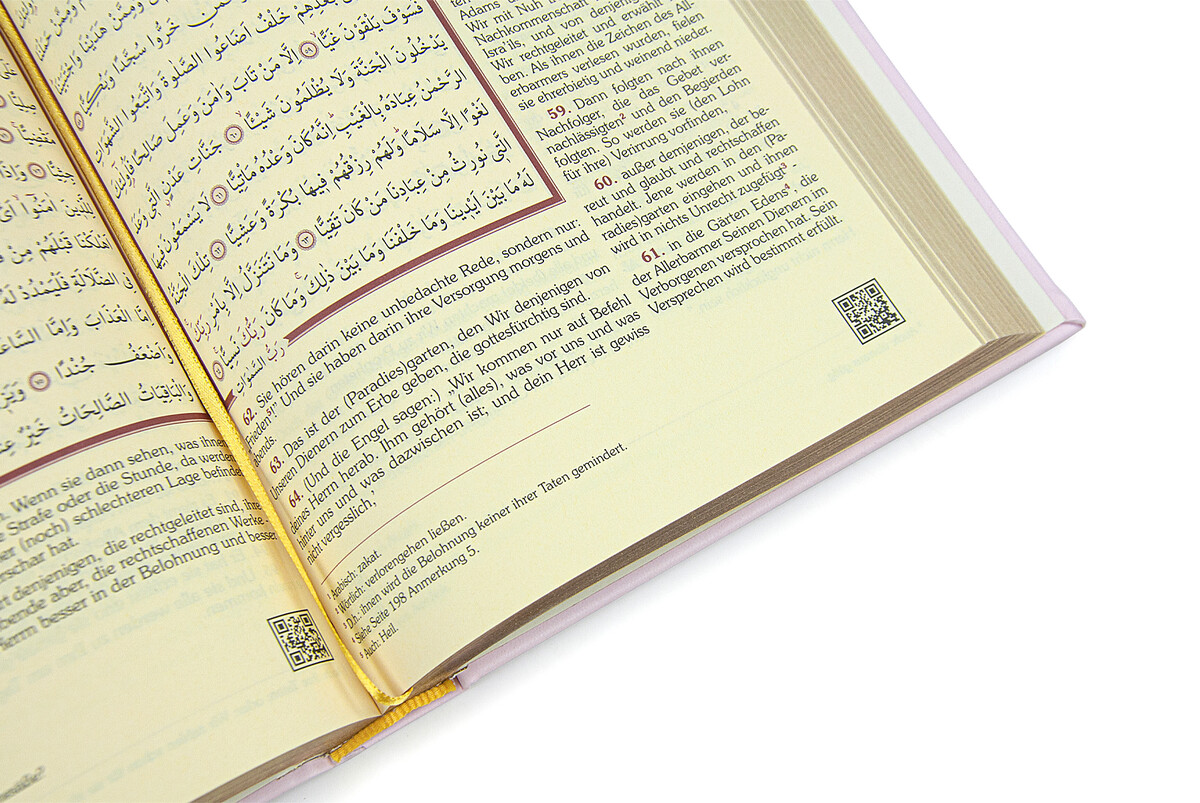 بَعْدِهِمْ خَلْفٌ اَضَاعُوا الصَّلٰوةَ وَاتَّبَعُوا الشَّهَوَاتِ
فَسَوْفَ يَلْقَوْنَ غَيًّا ﴿٥٩﴾ اِلَّا مَنْ تَابَ وَاٰمَنَ وَعَمِلَ صَالِحًا
يَدْخُلُونَ الْجَنَّةَ وَلَا يُظْلَمُونَ شَيْئًا ﴿٦٠﴾ جَنَّاتِ عَدْنٍ الَّتٖي وَعَدَ
الرَّحْمٰنُ عِبَادَهُ بِالْغَيْبِ اِنَّهُ كَانَ وَعْدُهُ مَأْتِيًّا ﴿٦١﴾ لَا يَسْمَعُونَ فٖيهَا
لَغْوًا اِلَّا سَلَامًا وَلَهُمْ رِزْقُهُمْ فٖيهَا بُكْرَةً وَعَشِيًّا ﴿٦٢﴾ تِلْكَ الْجَنَّةُ
الَّتٖي نُورِثُ مِنْ عِبَادِنَا مَنْ كَانَ تَقِيًّا ﴿٦٣﴾ وَمَا نَتَنَزَّلُ اِلَّا بِاَمْرِ رَبِّكَ
لَهُ مَا بَيْنَ اَيْدٖينَا وَمَا خَلْفَنَا وَمَا بَيْنَ ذٰلِكَ وَمَا كَانَ رَبُّكَ نَسِيًّا ﴿٦٤﴾
Adams
Wir mit Nuh
Nachkommenschaft
Isra'ils, und von denjenigen,
Wir rechtgeleitet und erwählt
ben. Als ihnen die Zeichen des All-
erbarmers verlesen wurden, fielen
sie ehrerbietig und weinend nieder.
59. Dann folgten nach ihnen
Nachfolger, die das Gebet ver-
nachlässigten² und den Begierden
folgten. So werden sie (den Lohn
für ihre) Verirrung vorfinden,
60. außer demjenigen, der be-
reut und glaubt und rechtschaffen
handelt. Jene werden in den (Pa-
radies)garten eingehen und ihnen
wird in nichts Unrecht zugefügt³ -
61. in die Gärten Edens⁴, die
der Allerbarmer Seinen Dienern im
Verborgenen versprochen hat. Sein
Versprechen wird bestimmt erfüllt.
62. Sie hören darin keine unbedachte Rede, sondern nur:
„Frieden⁵!“ Und sie haben darin ihre Versorgung morgens und
abends.
63. Das ist der (Paradies)garten, den Wir denjenigen von
Unseren Dienern zum Erbe geben, die gottesfürchtig sind.
64. (Und die Engel sagen:) „Wir kommen nur auf Befehl
deines Herrn herab. Ihm gehört (alles), was vor uns und was
hinter uns und was dazwischen ist; und dein Herr ist gewiss
nicht vergesslich,‘
¹ Arabisch: zakat.
² Wörtlich: verlorengehen ließen.
³ D.h.: ihnen wird die Belohnung keiner ihrer Taten gemindert.
⁴ Siehe Seite 198 Anmerkung 5.
⁵ Auch: Heil.
وَالْبَاقِيَاتُ الصَّالِحَاتُ خَيْرٌ
Wenn sie dann sehen, was ihnen
Strafe oder die Stunde, da werden
(noch) schlechteren Lage befindet
hat.
denjenigen, die rechtgeleitet sind, ihre
aber, die rechtschaffenen Werke -
besser in der Belohnung und besser